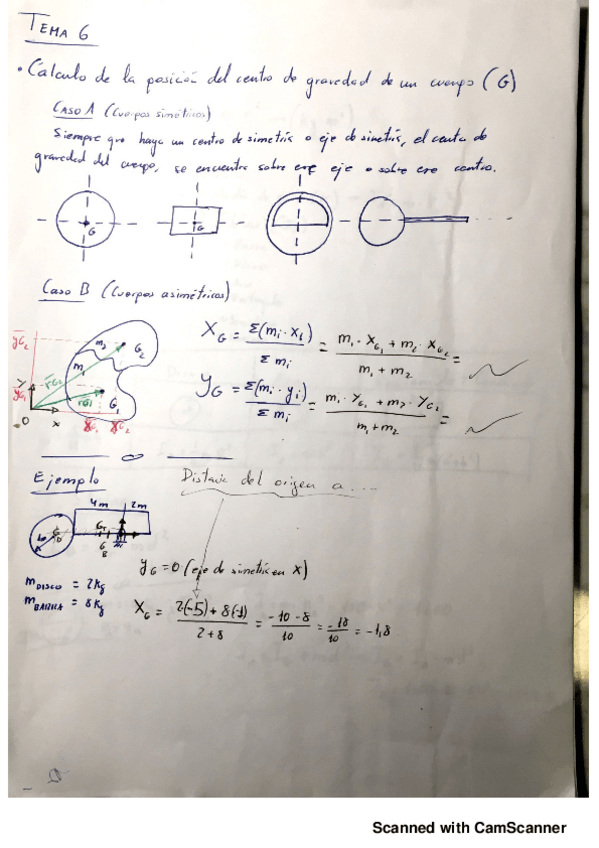 TEMA 6
• Calculo de la posición del centro de gravedad de un cuerpo (G)
CASO A (Cuerpos simétricos)
Siempre que haya un centro de simetría o eje de simetría, el centro de
gravedad del cuerpo, se encuentra sobre ese eje o sobre ese centro.
G G
CASO B (Cuerpos asimétricos)
XG = Σ(mi · xi) / Σ mi = m1 · XG1 + m2 · XG2 / m1 + m2 =
YG = Σ(mi · yi) / Σ mi = m1 · YG1 + m2 · YG2 / m1 + m2 =
yG2
m2
G2
m1
rG2
y
yG1
rG1
G1
O
x
xG1 xG2
Ejemplo
Distancia del origen a ....
4m 2m
yG = 0 (eje de simetría en x)
mDISCO = 2kg
mBARRA = 8kg
XG = 2(-5) + 8(-1) / 2+8 = -10-8 / 10 = -18 / 10 = -1,8
Scanned with CamScanner